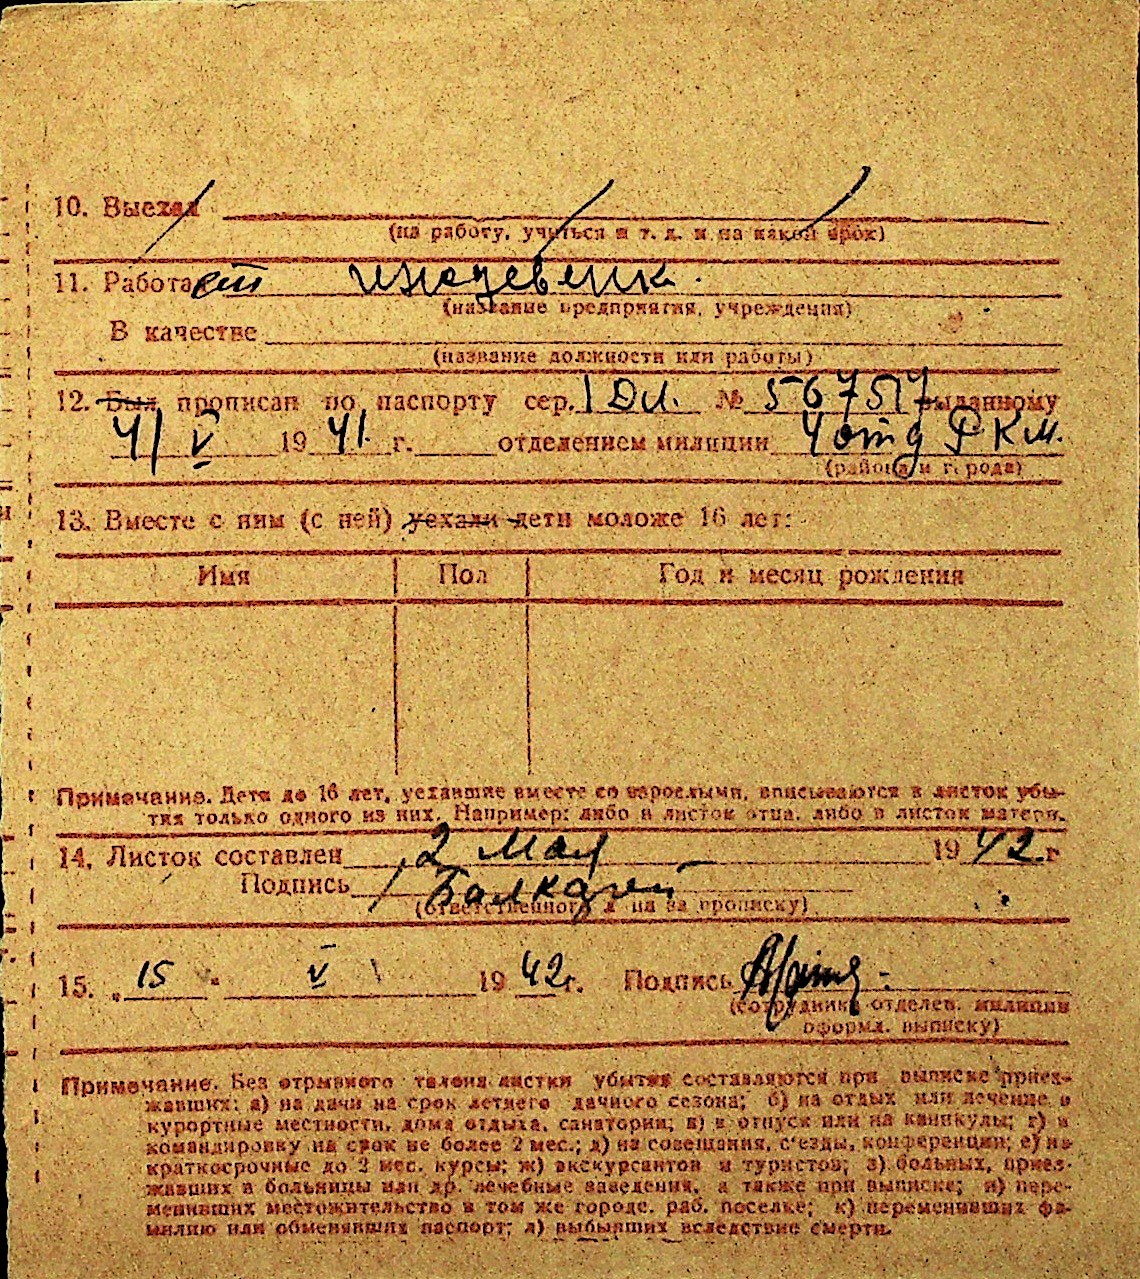 10. Выехал
(на работу, учиться и т. д. и на какой срок)
11. Работает иждевенк.
(название предприятия, учреждения)
В качестве
(название должности или работы)
12. Был прописан по паспорту сер. I ДИ. № 567517 выданному
4/V 1941. г. отделением милиции 4 отд РКМ.
(района и города)
13. Вместе с ним (с ней) уехали дети моложе 16 лет:
Имя Пол Год и месяц рождения
Примечание. Дети до 16 лет, уехавшие вместе со взрослыми, вписываются в листок убы-
тия только одного из них. Например: либо в листок отца, либо в листок матери.
14. Листок составлен 2 Мая 1942. г
Подпись
(ответственного лица за прописку)
15. „15" V 1942 г. Подпись
(сотрудника отделен. милиции
оформл. выписку)
Примечание. Без отрывного талона листки убытия составляются при выписке приез-
жавших: а) на дачи на срок летнего дачного сезона; б) на отдых или лечение в
курортные местности, дома отдыха, санатории; в) в отпуск или на каникулы; г) в
командировку на срок не более 2 мес.; д) на совещания, с'езды, конференции; е) на
краткосрочные до 2 мес. курсы; ж) экскурсантов и туристов; з) больных, приез-
жавших в больницы или др. лечебные заведения, а также при выписке; и) пере-
менивших местожительство в том же городе, раб. поселке; к) переменивших фа-
милию или обменявших паспорт; л) выбывших вследствие смерти.